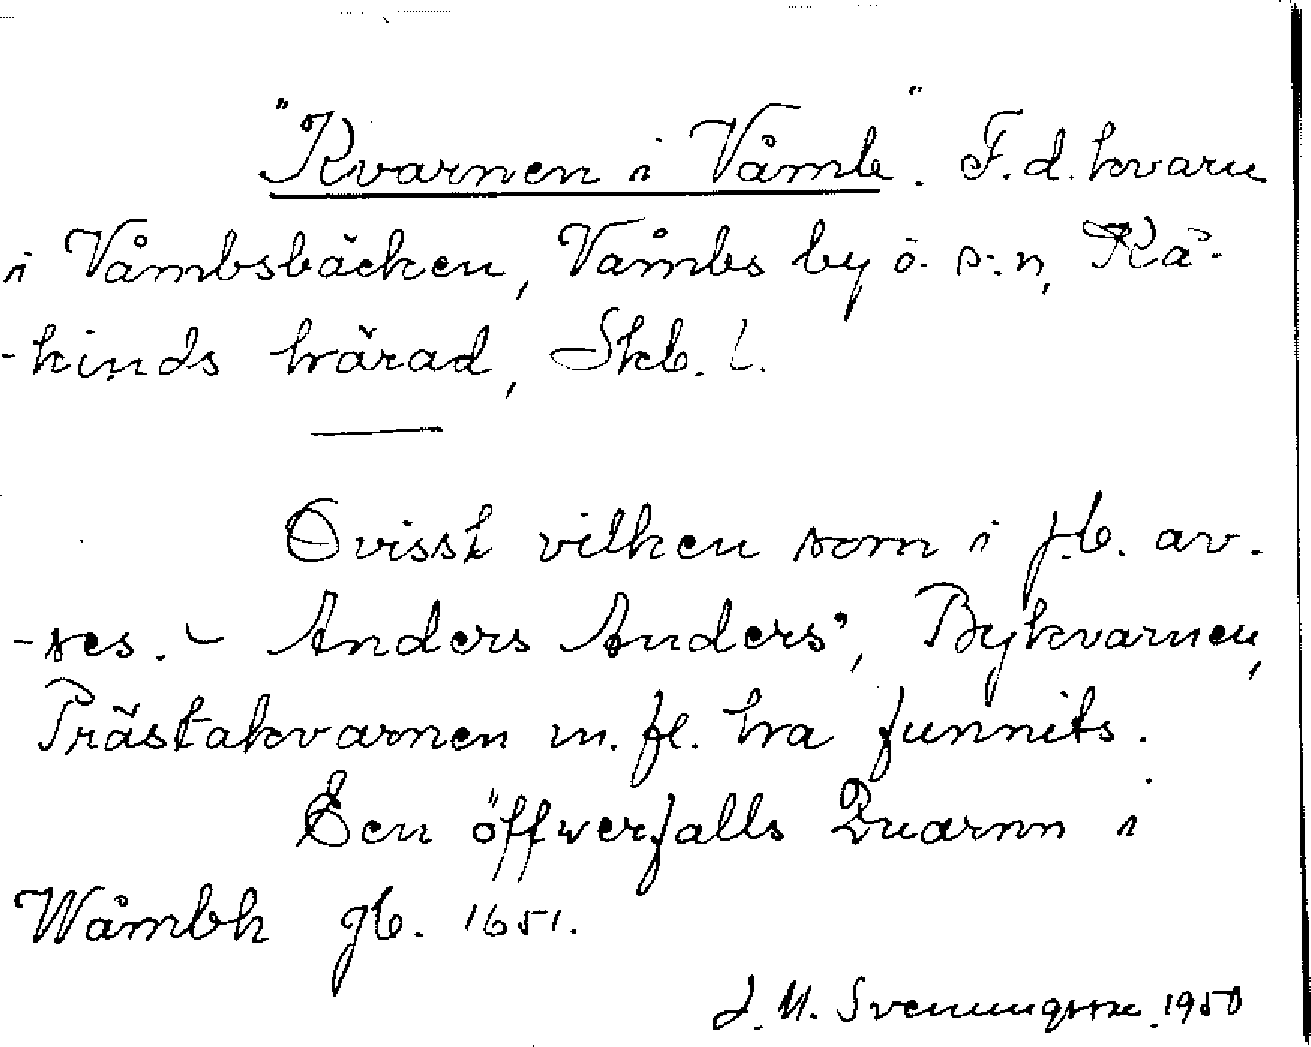 "Kvarnen i Våmb". F.d. kvarn
i Våmbsbäcken, Våmbs by o. s:n, Kå-
-kinds härad, Skb. l.
Ovisst vilken som i jb. av-
-ses. - Anders Anders', Bykvarnen,
Prästakvarnen m. fl. ha funnits.
Een öffwerfalls Quarnn i
Wåmbh jb. 1651.
J. M. Svenungsson. 1950